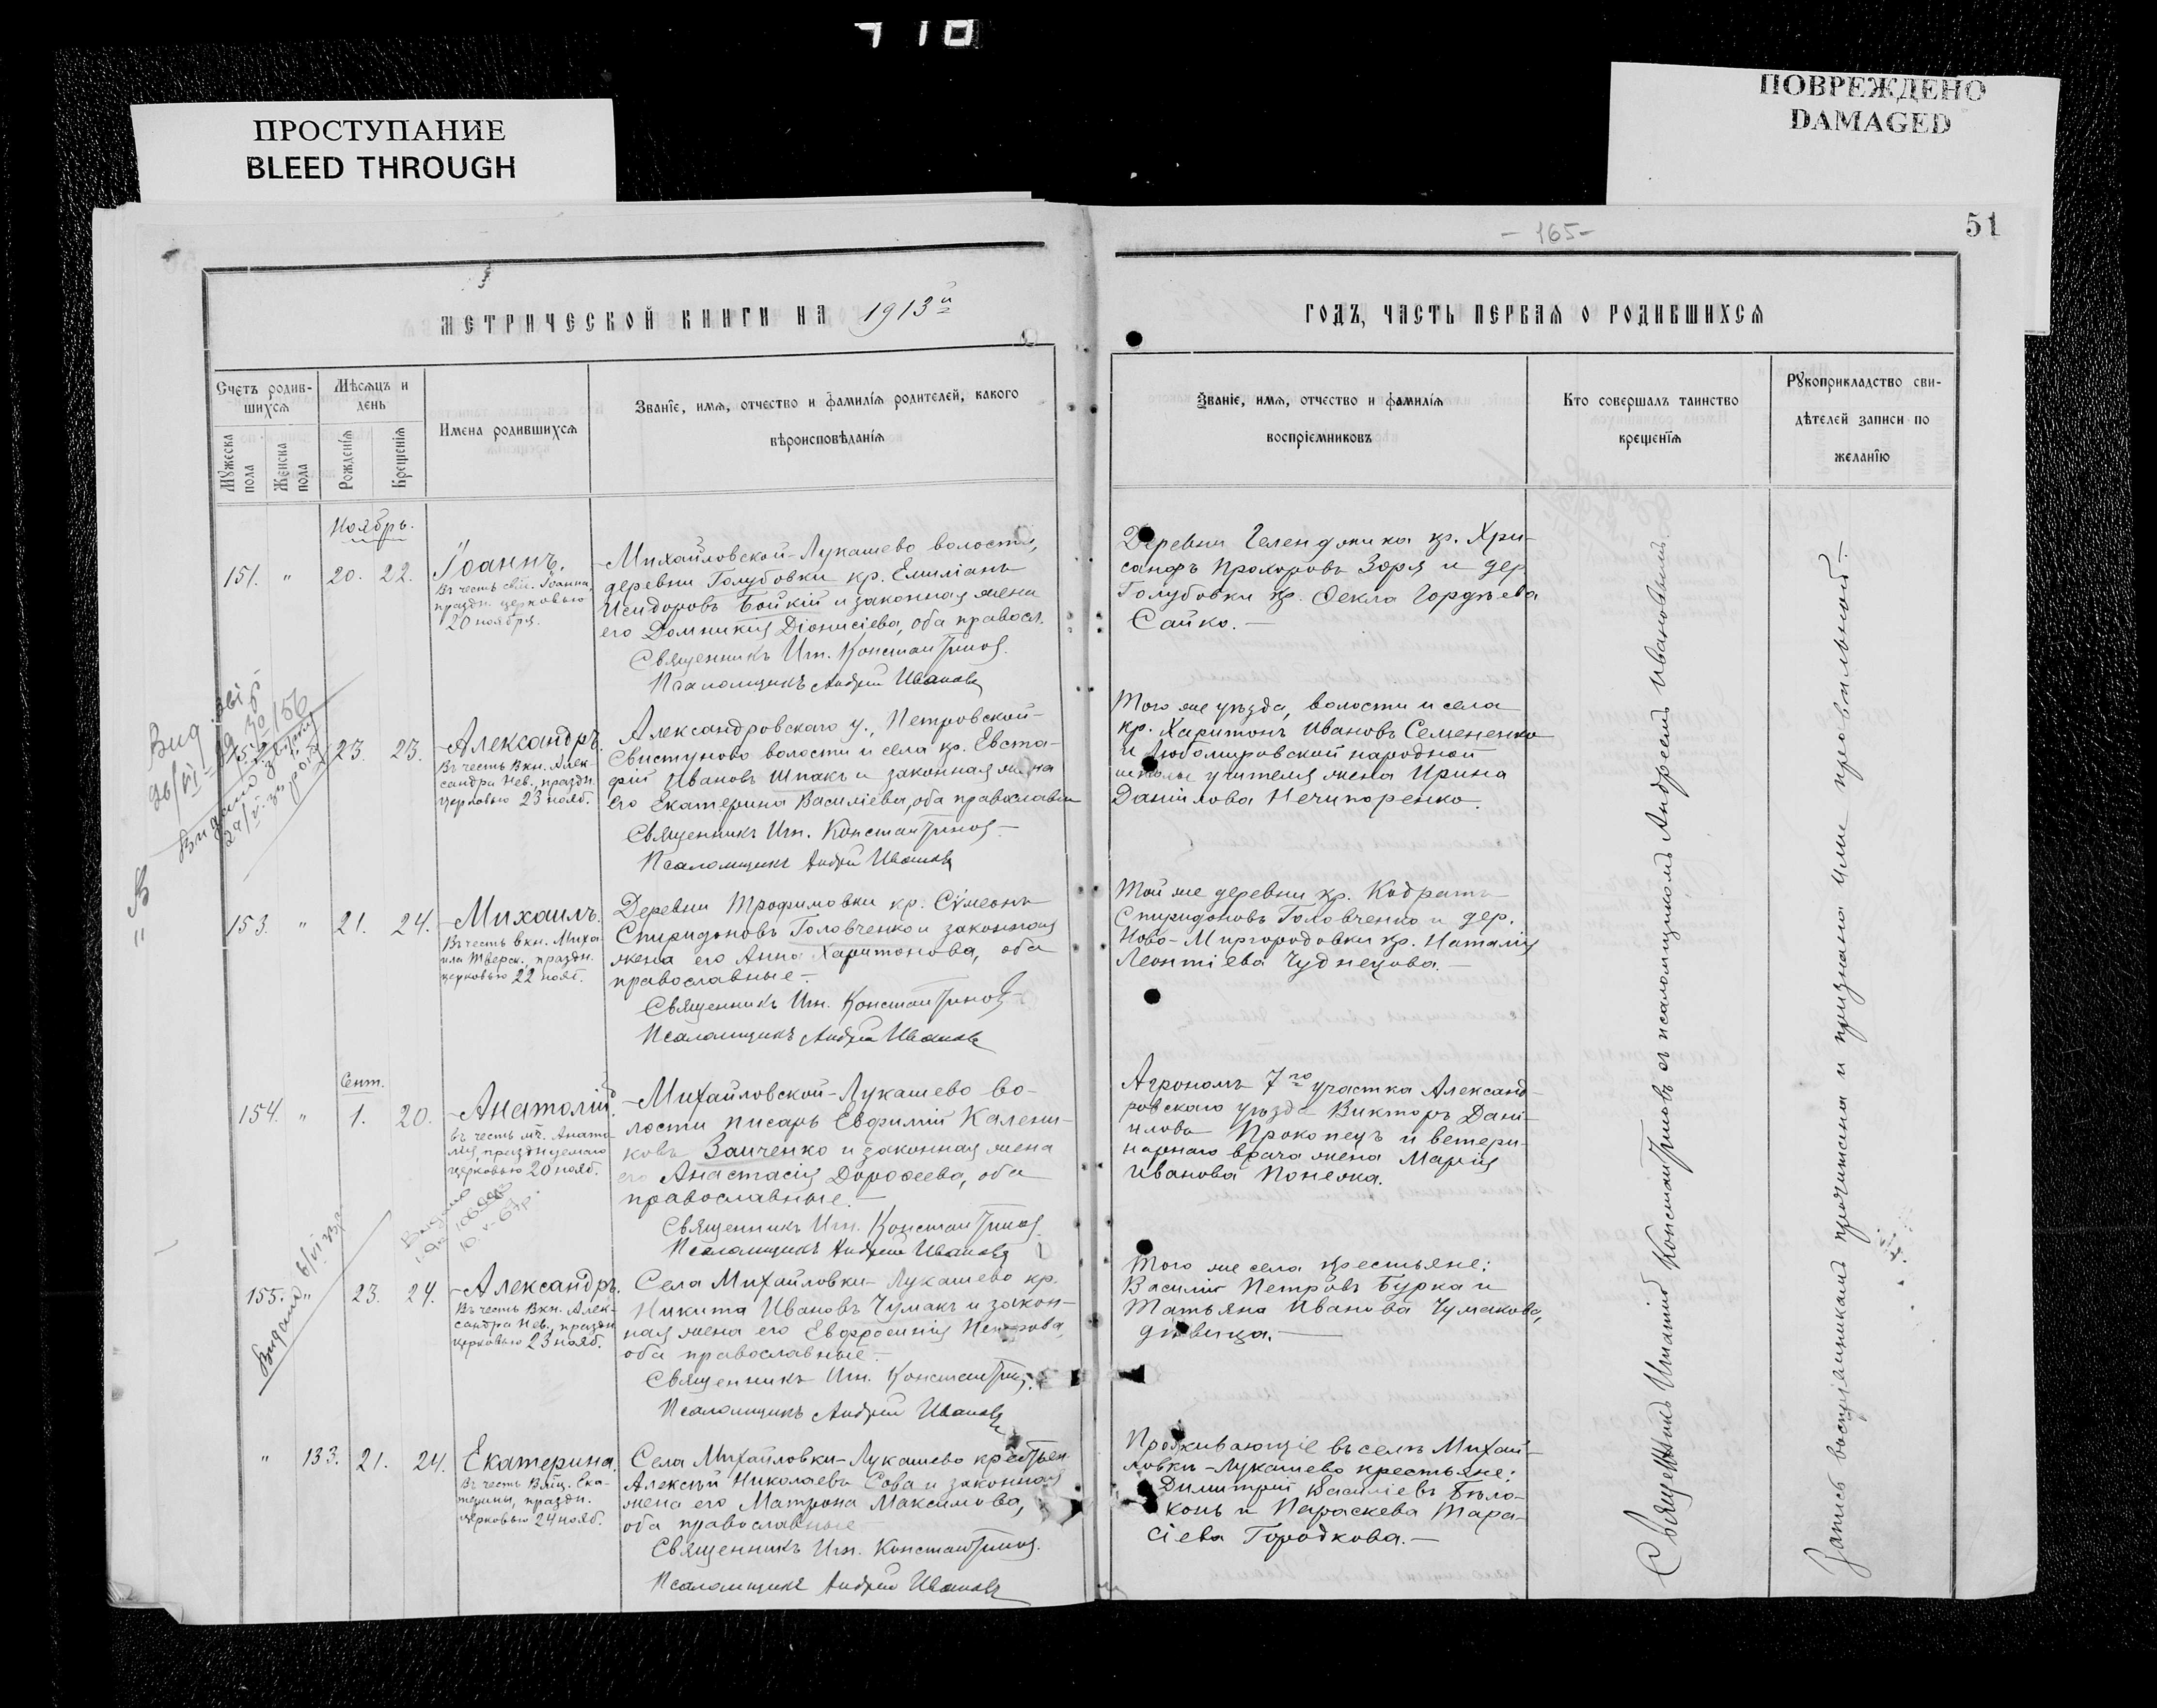 ПРОСТУПАНИЕ
BLEED THROUGH
ПОВРЕЖДЕНО
DAMAGED
51
- 165-
МЕТРИЧЕСКОЙ КНИГИ НА 1913й
ГОДЪ, ЧАСТЬ ПЕРВАЯ О РОДИВШИХСЯ
Счетъ родив-
шихся
Мужеска
пола
Женска
пола
Мѣсяцъ и
день
Рожденія
Крещенія
Имена родившихся
Званіе, имя, отчество и фамилія родителей, какого
вѣроисповѣданія
Званіе, имя, отчество и фамилія
воспріемниковъ
Кто совершалъ таинство
крещенія
Рукоприкладство сви-
дѣтелей записи по
желанію
Ноябрь.
151. " 20. 22.
Іоаннъ.
Въ честь свщ. Іоанна,
праздн. церковью
20 ноября.
Михайловской-Лукашево волости,
деревни Голубовки кр. Емиліанъ
Исидоровъ Бойкій и законная жена
его Домникія Діонисіева, оба правосл.
Священникъ Игн. Константинов.
Псаломщикъ Андрей Ивановъ
Деревни Геленджика кр. Хри-
санфъ Прохоровъ Зоря и дер.
Голубовки кр. Ѳекла Гордѣева
Сайко.
152. 23. 23.
Александръ.
Въ честь Вкн. Алек-
сандра Нев., праздн.
церковью 23 нояб.
Александровскаго у., Петровской-
Свистуново волости и села кр. Евста-
фій Ивановъ Шпакъ и законная жена
его Екатерина Василіева, оба православн
Священникъ Игн. Константинов
Псаломщикъ Андрей Ивановъ
Того же уѣзда, волости и села
кр. Харитонъ Ивановъ Семененко
и Любомировской народной
школы учителя жена Ирина
Даніилова Нечипоренко.
153. " 21. 24.
Михаилъ.
Въ честь вкн. Миха-
ила Тверск., праздн.
церковью 22 нояб.
Деревни Трофимовки кр. Сѵмеонъ
Спиридоновъ Головченко и законная
жена его Анна Харитонова, оба
православные
Священникъ Игн. Константинов
Псаломщикъ Андрей Ивановъ
Той же деревни кр. Кодратъ
Спиридоновъ Головченко и дер.
Ново-Миргородовки кр. Наталія
Леонтіева Чуднецова.
Сент.
154. " 1. 20.
Анатолій.
въ честь мч. Анато-
лія, празднуемаго
церковью 20 нояб.
Михайловской-Лукашево во-
лости писарь Евфимій Калени-
ковъ Заиченко и законная жена
его Анастасія Дороѳеева, оба
православные.
Священникъ Игн. Константинов
Псаломщикъ Андрей Ивановъ
Агрономъ 7го участка Александ-
ровскаго уѣзда Викторъ Дані-
иловъ Прокопецъ и ветери-
нарнаго врача жена Марія
Иванова Понежа.
155. " 23. 24.
Александръ.
Въ честь Вкн. Алек-
сандра Нев., праздн
церковью 23 нояб.
Села Михайловки-Лукашево кр.
Никита Ивановъ Чумакъ и закон-
ная жена его Евфросинія Петрова,
оба православные
Священникъ Игн. Константинов
Псаломщикъ Андрей Ивановъ
Того же села крестьяне:
Василій Петровъ Бурка и
Татьяна Иванова Чумакова,
дѣвица.
" 133. 21. 24.
Екатерина.
Въ честь Вмц. Ека-
терины, праздн.
церковью 24 нояб.
Села Михайловки-Лукашево крестьян.
Алексѣй Николаевъ Сова и законная
жена его Матрона Максимова,
оба православные
Священникъ Игн. Константинов.
Псаломщикъ Андрей Ивановъ
Проживающіе въ селѣ Михай-
ловкѣ-Лукашево крестьяне:
Димитрій Василіевъ Бѣло-
конь и Параскева Тара-
сіева Городкова.
Священникъ Игнатій Константиновъ съ псаломщикомъ Андреемъ Ивановымъ
Запись воспріемниками прочитана и признана ими правильной.